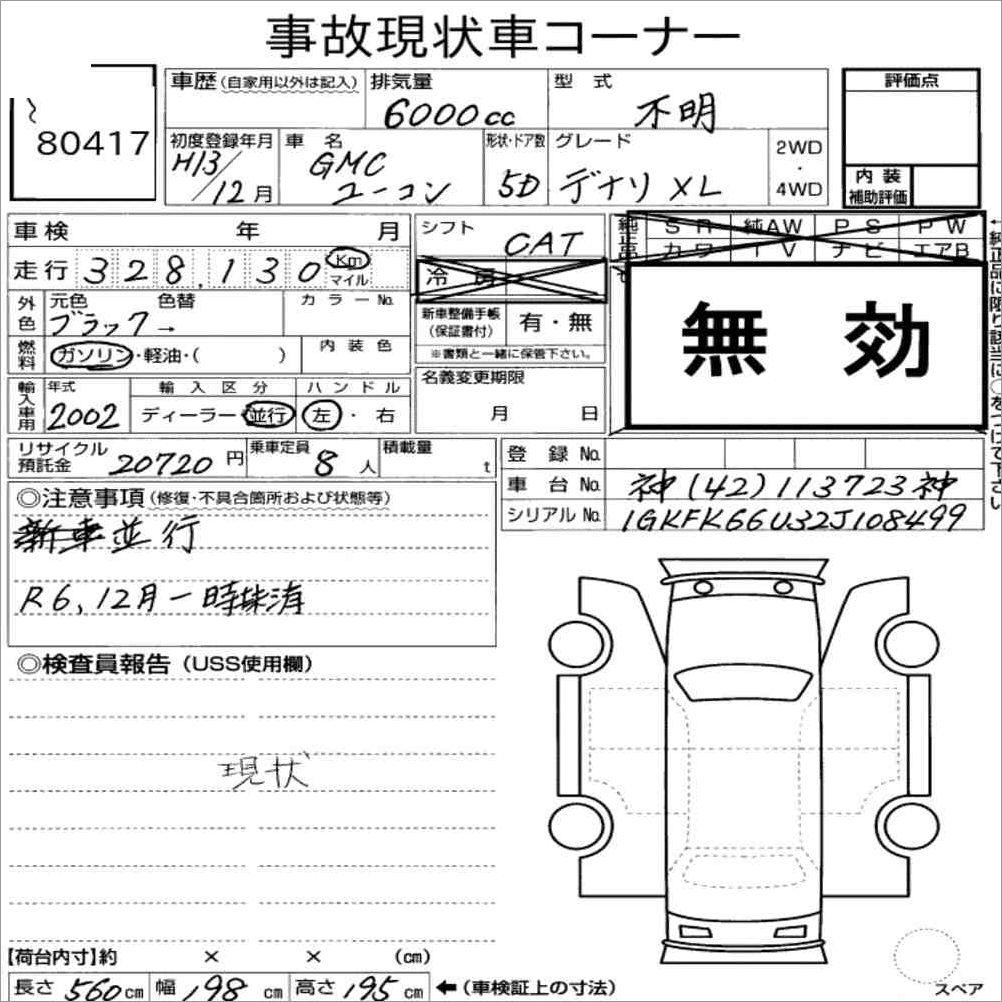 事故現状車コーナー
80417
車歴(自家用以外は記入) 排気量 6000cc 型式 不明
評価点
初度登録年月 H13/12月 車名 GMC ユーコン 形状・ドア数 5D グレード デナリXL 2WD・4WD
内装補助評価
車検 年 月
シフト CAT
純正品 SR 純AW PS PW
カワ TV ナビ エアB
走行 328,130 Km マイル
冷房
外色 元色 ブラック→ 色替 カラーNo.
新車整備手帳(保証書付) 有・無
※書類と一緒に保管下さい。
無効
←純正品に限り該当に○をつけて下さい
燃料 ガソリン・軽油・( ) 内装色
名義変更期限 月 日
輸入車用 年式 2002 輸入区分 ディーラー・並行 ハンドル 左・右
リサイクル預託金 20720円 乗車定員 8人 積載量 t
登録No.
車台No. 神(42)113723神
シリアルNo. 1GKFK66U32J108499
◎注意事項(修復・不具合箇所および状態等)
新車並行
R6,12月一時抹消
◎検査員報告(USS使用欄)
現状
【荷台内寸】約 × × (cm)
長さ 560cm 幅 198cm 高さ 195cm ←(車検証上の寸法)
スペア